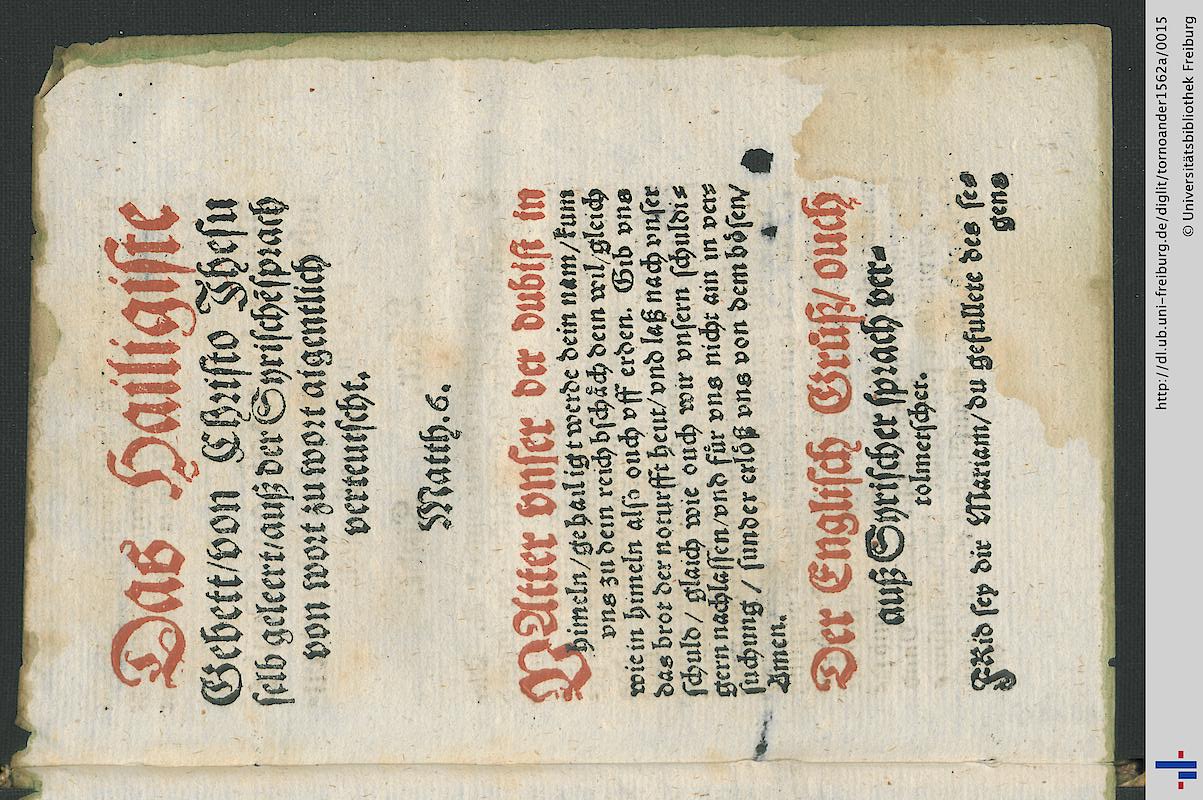 Das Hailigiste
Gebett/von Christo Jhesu
selb geleert/auß der Syrischē sprach
von wort zu wort aigentlich
verteutscht.
Matth. 6.
VAtter vnser der du bist in
himeln/gehailigt werde dein nam/kum
vns zu dein reich bschäch dein wil/gleich
wie in himeln also ouch vff erden. Gib vns
das brot der noturfft heut/vnd laß nach vnser
schuld/ glaich wie ouch wir vnsern schuldi⸗
gern nachlassen/vnd für vns nicht ain in ver⸗
suchung / sunder erlöß vns von dem bösen/
Amen.
Der Englisch Gruß/ ouch
auß Syrischer sprach ver⸗
tolmetschet.
FRid sey dir Mariam/du gefullete des se⸗
gens
http://dl.ub.uni-freiburg.de/diglit/tornoander1562a/0015
© Universitätsbibliothek Freiburg